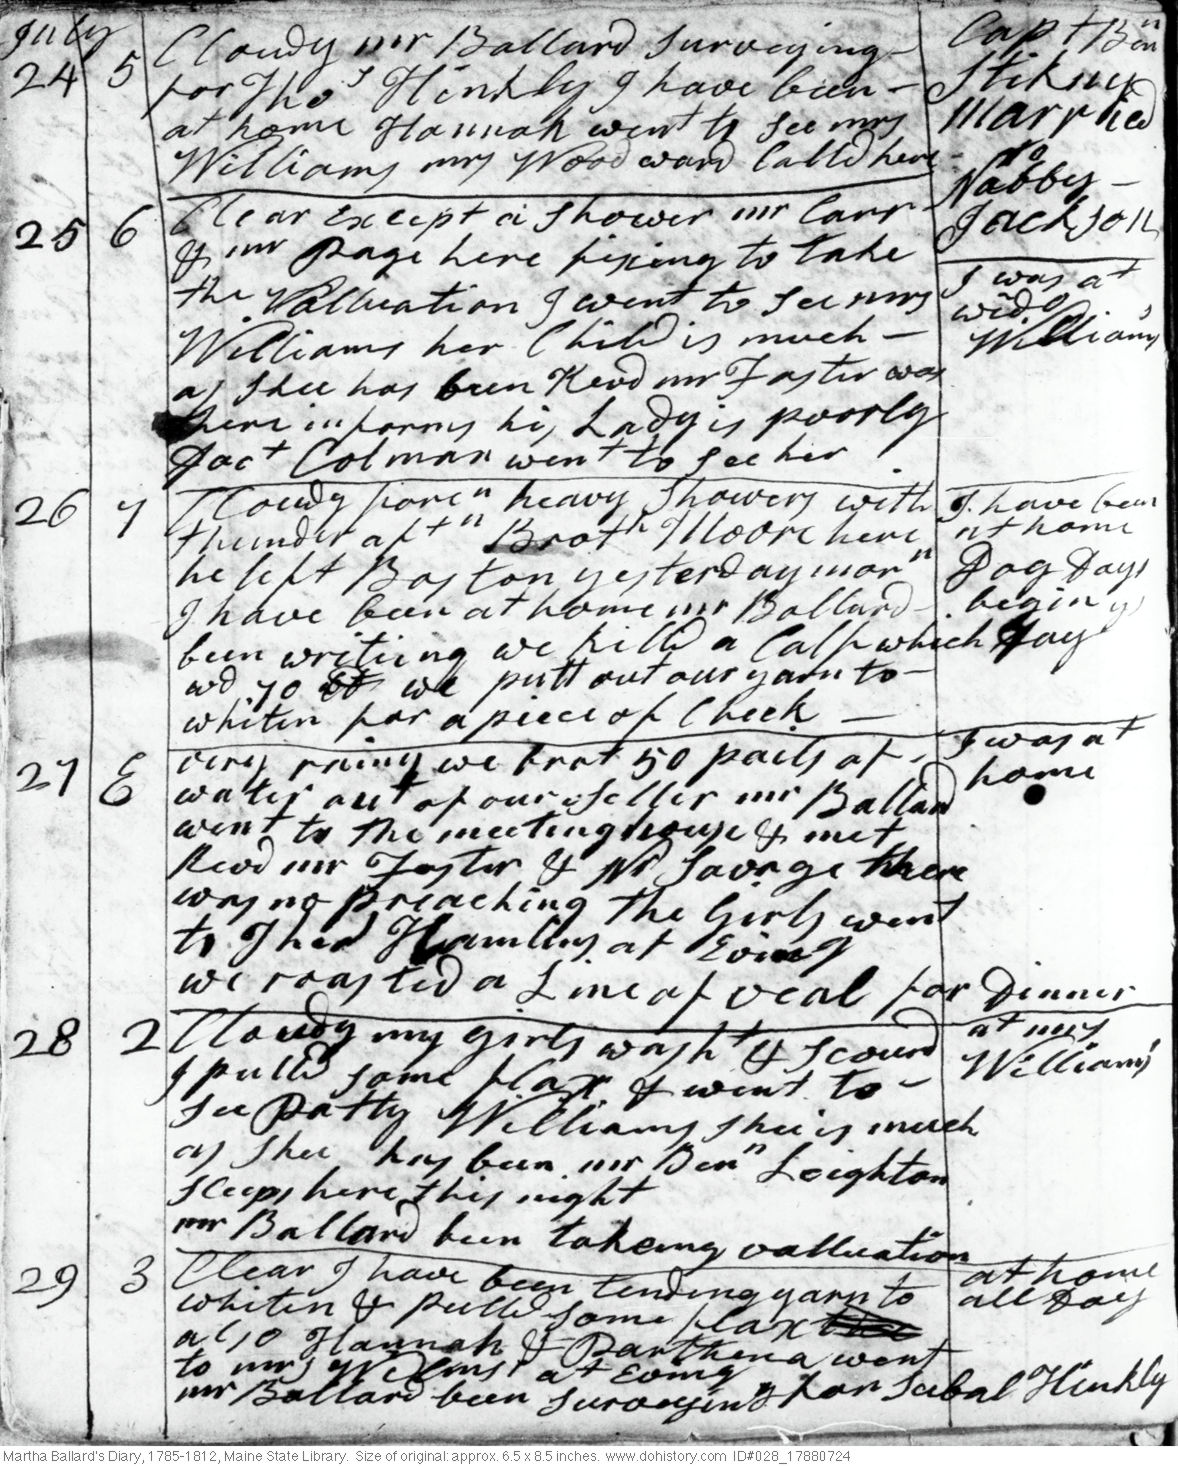 July
24 5 Cloudy mr Ballard Surveying
for Thos Hinkly I have been
at home Hannah went to See mrs
Williams mrs Woodward Calld here
Capt Bn
Stikny
Married
to
Nabby
Jackson
25 6 Clear Except a Shower mr Carr
& mr Page here fixing to take
the Valluation I went to See mrs
Williams her Child is much
as Shee has been Revd mr Foster was
there informs his Lady is poorly
Doct Colman went to See her
I was at
wido
Williams
26 7 Cloudy foren heavy Showers with
thunder aftn Broth Moore here
he left Boston yesterday morn
I have been at home mr Ballard
been writing we killd a Calf which
wd 70 lb we putt out our yarn to
whiten for a piece of Check
I have been
at home
Dog Days
begin ys
Day
27 E very rainy we brot 50 pails of
water out of our Seller mr Ballard
went to the meeting house & met
Revd mr Foster & No Savage there
was no preaching the Girls went
to Hamlins at Evng
we roasted a Line of veal for Dinner
I was at
home
28 2 Cloudy my girls washt & scourd
I pulld some flax & went to
See Patty Williams shee is much
as Shee has been mr Benn Leighton
sleeps here this night
mr Ballard been takeing valluation
at mrs
Williams
29 3 Clear I have been tending yarn to
whiten & pulld Some flax
also Hannah & Parthena went
to mrs Wilms at Evng
mr Ballard been Surveying for Subal Hinkly
at home
all Day
Martha Ballard's Diary, 1785-1812, Maine State Library. Size of original: approx. 6.5 x 8.5 inches. www.dohistory.com ID#028_17880724